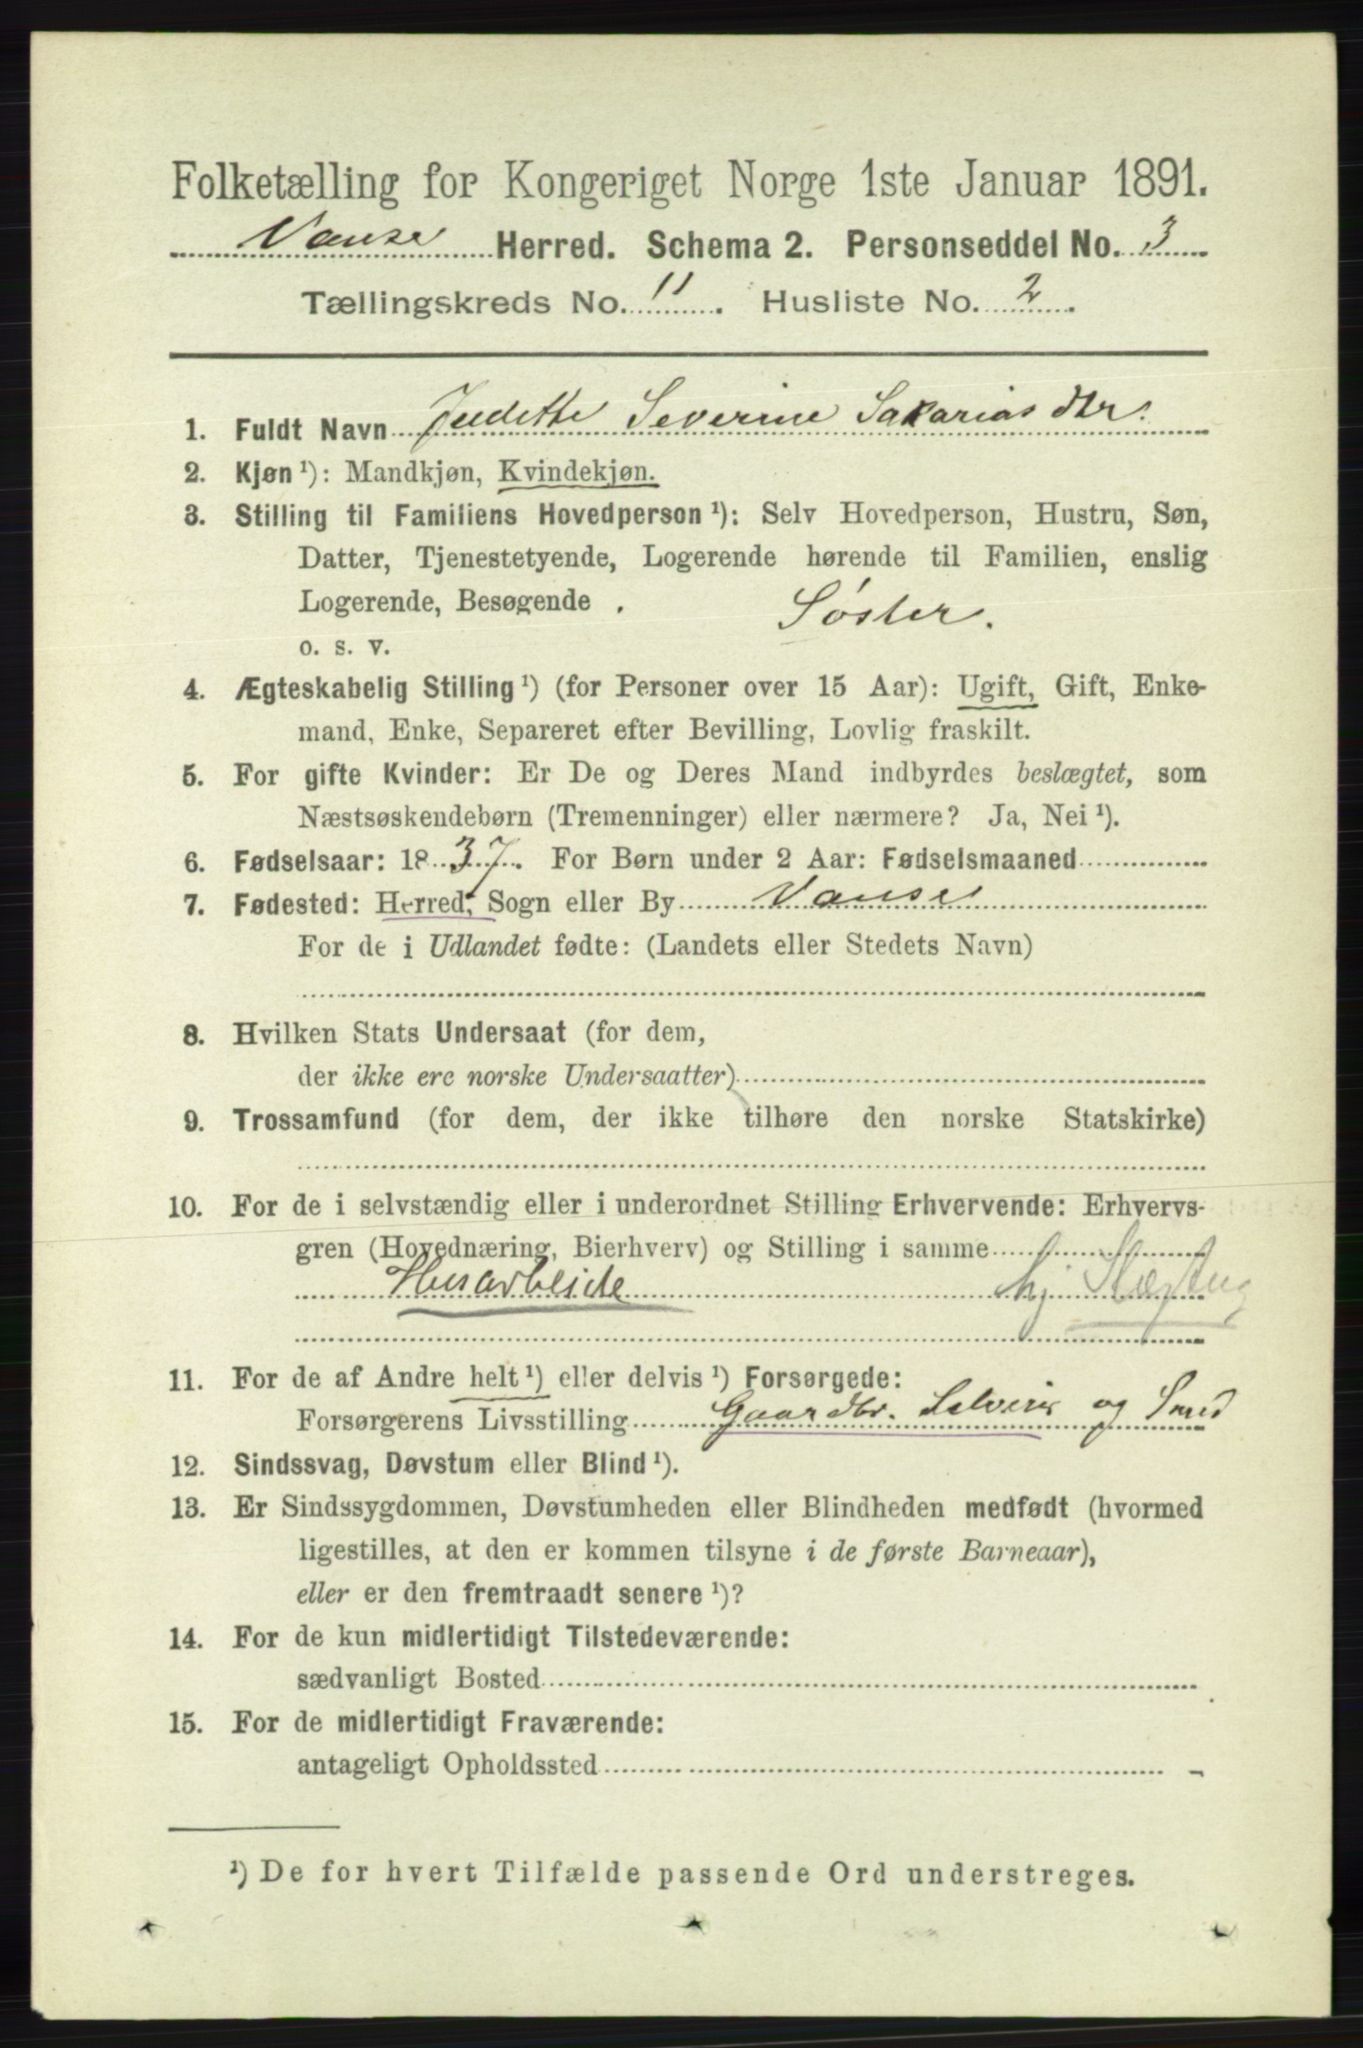 Folketælling for Kongeriget Norge 1ste Januar 1891.
Vanse Herred. Schema 2. Personseddel No. 3
Tællingskreds No. 11. Husliste No. 2.
1. Fuldt Navn Judette Severine Sakariasdtr.
2. Kjøn ¹): Mandkjøn, Kvindekjøn.
3. Stilling til Familiens Hovedperson ¹): Selv Hovedperson, Hustru, Søn,
Datter, Tjenestetyende, Logerende hørende til Familien, enslig
Logerende, Besøgende . Søster.
o. s. v.
4. Ægteskabelig Stilling ¹) (for Personer over 15 Aar): Ugift, Gift, Enke-
mand, Enke, Separeret efter Bevilling, Lovlig fraskilt.
5. For gifte Kvinder: Er De og Deres Mand indbyrdes beslægtet, som
Næstsøskendebørn (Tremenninger) eller nærmere? Ja, Nei ¹).
6. Fødselsaar: 1837. For Børn under 2 Aar: Fødselsmaaned
7. Fødested: Herred, Sogn eller By Vanse
For de i Udlandet fødte: (Landets eller Stedets Navn)
8. Hvilken Stats Undersaat (for dem,
der ikke ere norske Undersaatter)
9. Trossamfund (for dem, der ikke tilhøre den norske Statskirke)
10. For de i selvstændig eller i underordnet Stilling Erhvervende: Erhvervs-
gren (Hovednæring, Bierhverv) og Stilling i samme
Husarbeide hj
11. For de af Andre helt ¹) eller delvis ¹) Forsørgede:
Forsørgerens Livsstilling Gaardbr. Selveier og Smed
12. Sindssvag, Døvstum eller Blind ¹).
13. Er Sindssygdommen, Døvstumheden eller Blindheden medfødt (hvormed
ligestilles, at den er kommen tilsyne i de første Barneaar),
eller er den fremtraadt senere ¹)?
14. For de kun midlertidigt Tilstedeværende:
sædvanligt Bosted
15. For de midlertidigt Fraværende:
antageligt Opholdssted
¹) De for hvert Tilfælde passende Ord understreges.